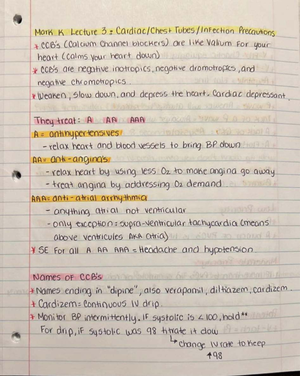 Mark K Lecture 3: Cardiac/Chest Tubes/Infection Precautions
* CCB's (Calcium Channel blockers) are like Valium for your
heart (Calms your heart down)
* CCB's are negative inotropics, negative dromotropics, and
negative chromotropics
* Weaken, slow down, and depress the heart. Cardiac depressant
They treat: A AA AAA
A = antihypertensives
- relax heart and blood vessels to bring BP down
AA = anti-anginals
- relax heart by using less O2 to make angina go away
- treat angina by addressing O2 demand
AAA = anti-atrial arrhythmia
- anything atrial not ventricular
- only exception: supra-ventricular tachycardia (means
above ventricules AKA atria)
* SE for all A AA AAA = Headache and hypotension
Names of CCB's
* Names ending in "dipine", also verapamil, diltiazem, cardizem
* Cardizem = continuous IV drip
* Monitor BP intermittently. If systolic is <100, hold**
For drip, if systolic was 98 titrate it down
↳ change IV rate to keep
↑98